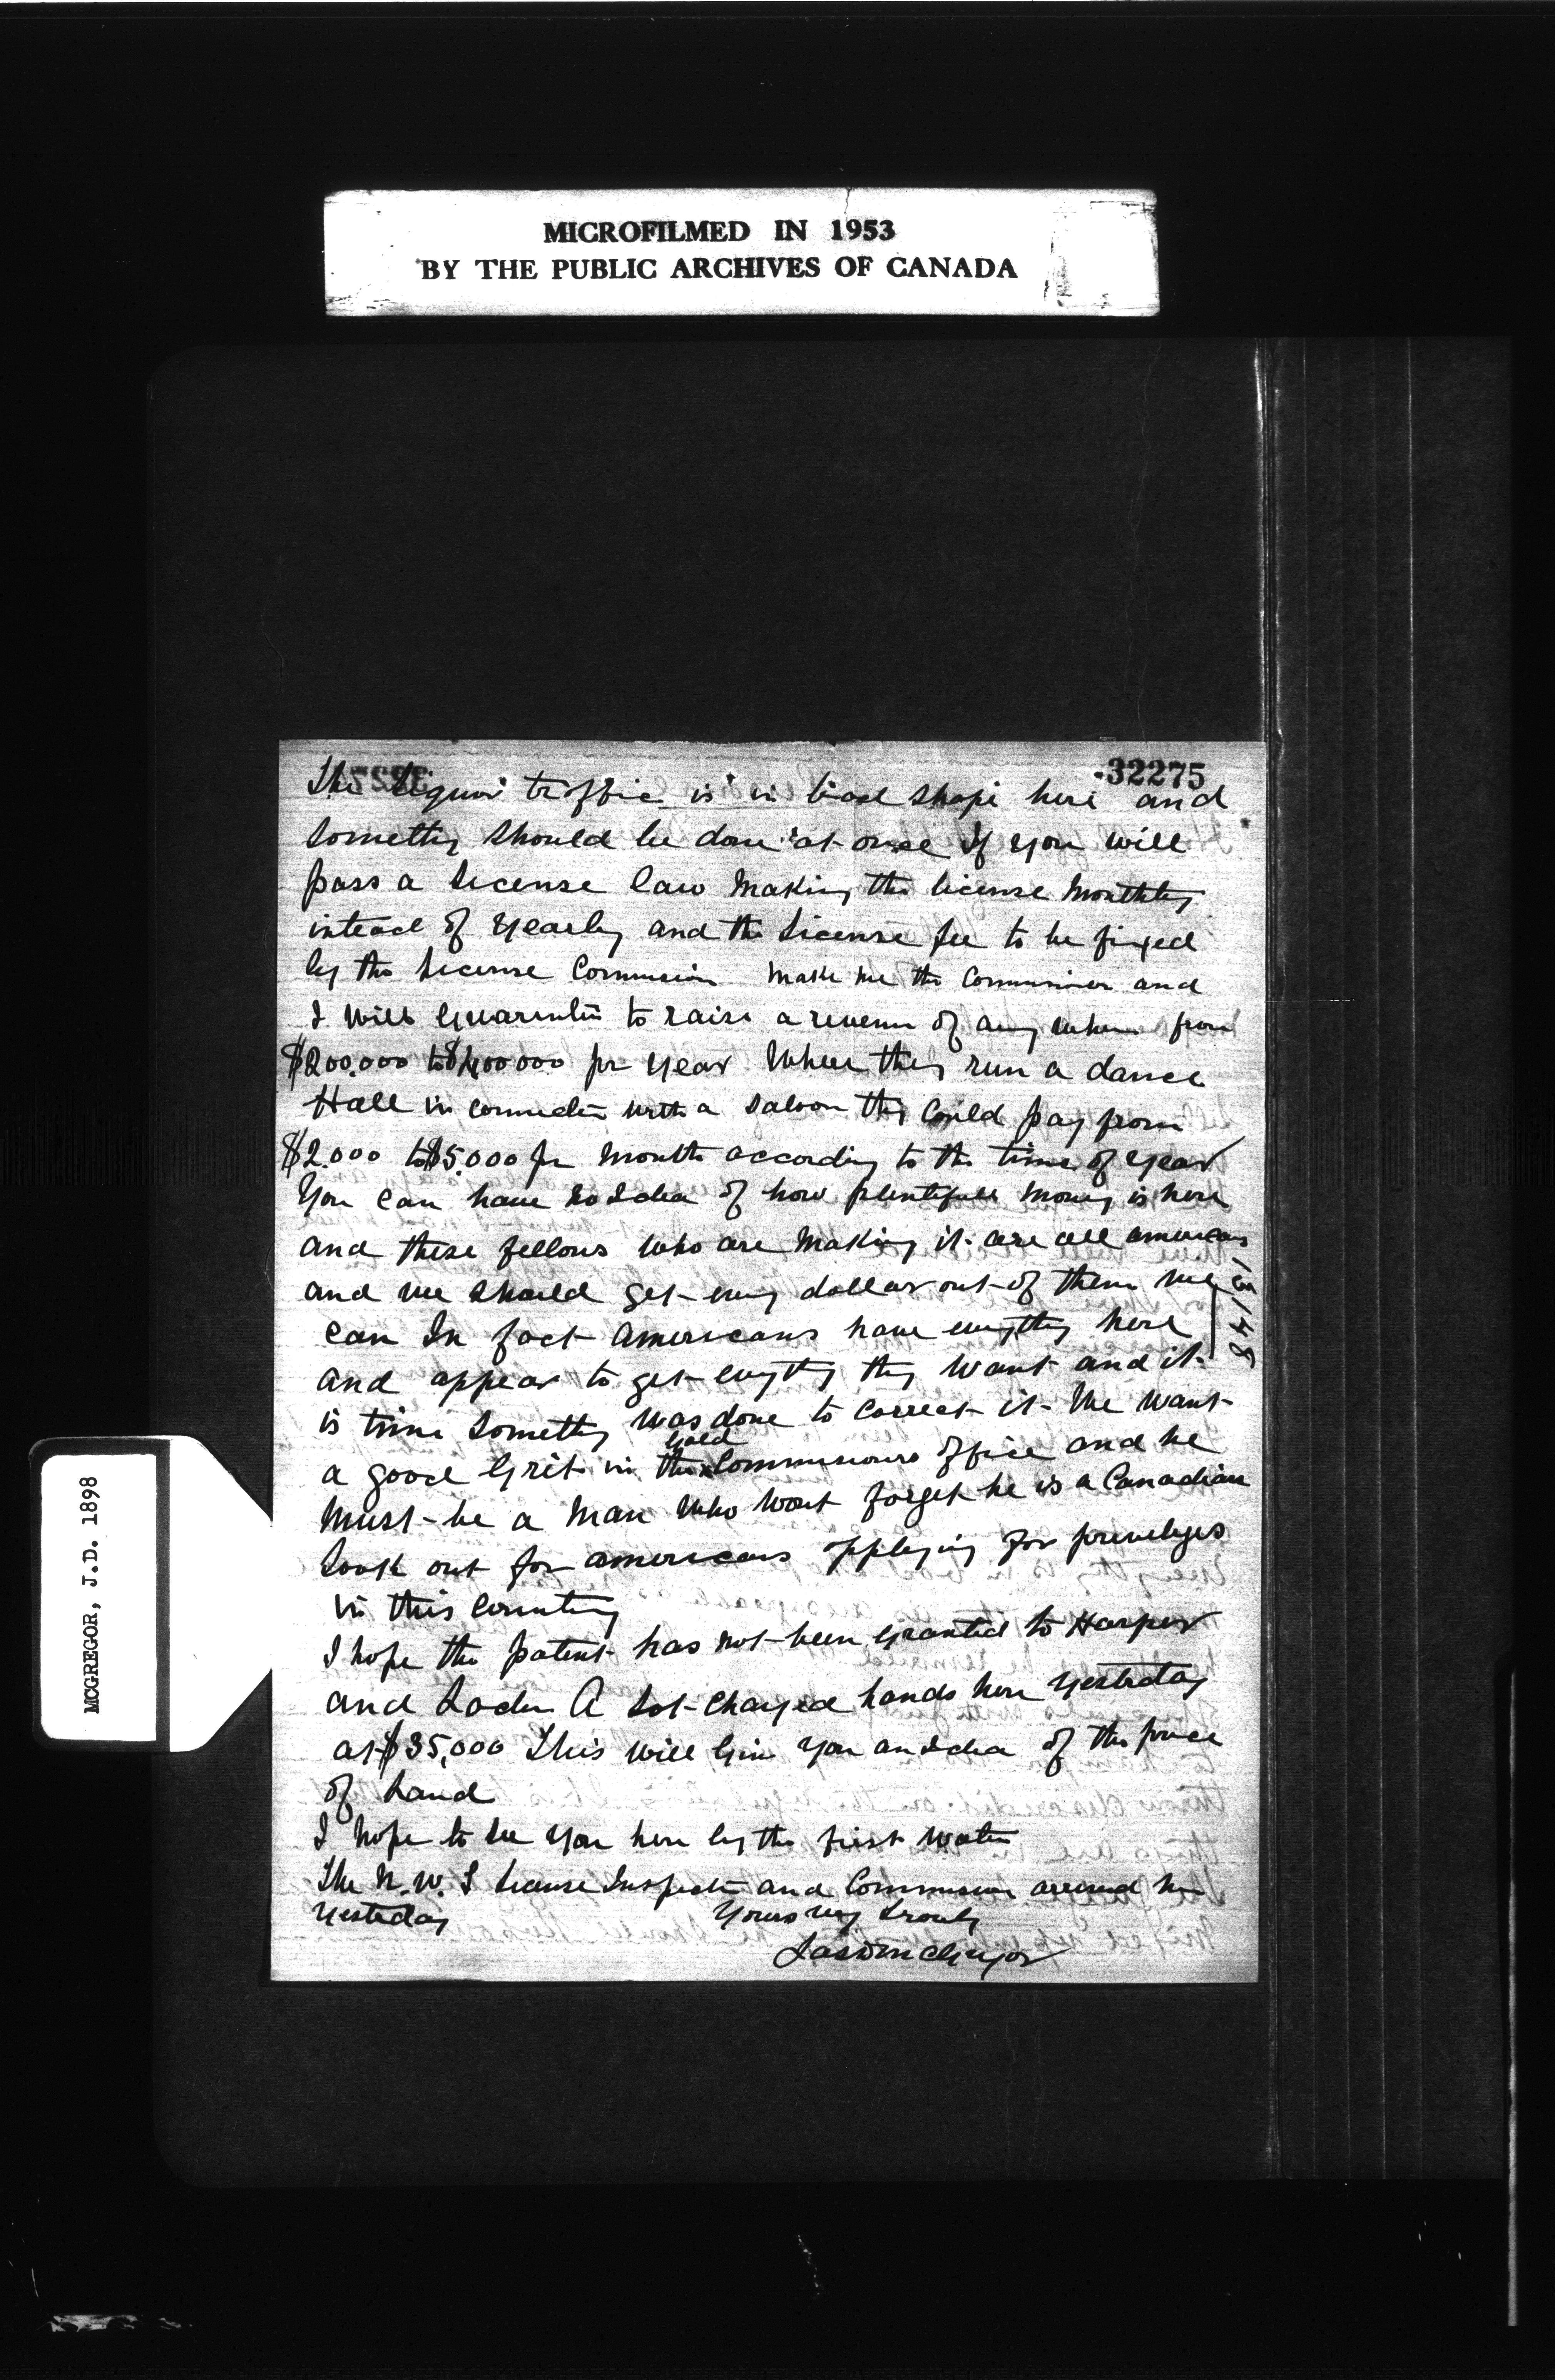 MICROFILMED IN 1953
BY THE PUBLIC ARCHIVES OF CANADA
32275
The Liquor traffic is in bad shape here and
something should be done at once If you will
pass a License law making the license monthly
intead of yearly and the License fee to be fixed
by the License Commision make me the Commisioner and
I will guarentee to raise a revenu of any where from
$200.000 to $400000 pr year Where they run a dance
Hall in connection with a saloon they could pay from
$2.000 to $5.000 pr month according to the time of year
You can have no Idea of how plentifull money is here
and these fellows who are making it are all americans
and we should get every dollar out of them we
can In fact Americans have everything here
and appear to get everything they want and it
is time something was done to correct it We want
a good Grit in the Gold Commisioners office and he
must be a man who wont forget he is a Canadian
Look out for americans applying for priveleges
in this Country
I hope the patent has not been granted to Harper
and Ladu A Lot changed hands here yesterday
at $35,000 This will give you an Idea of the price
of Land
I hope to see you here by the first water
The N.W.T License Inspector and Commision arrived here
yesterday Yours very truly
Jas D McGregor
13148
MCGREGOR, J.D. 1898